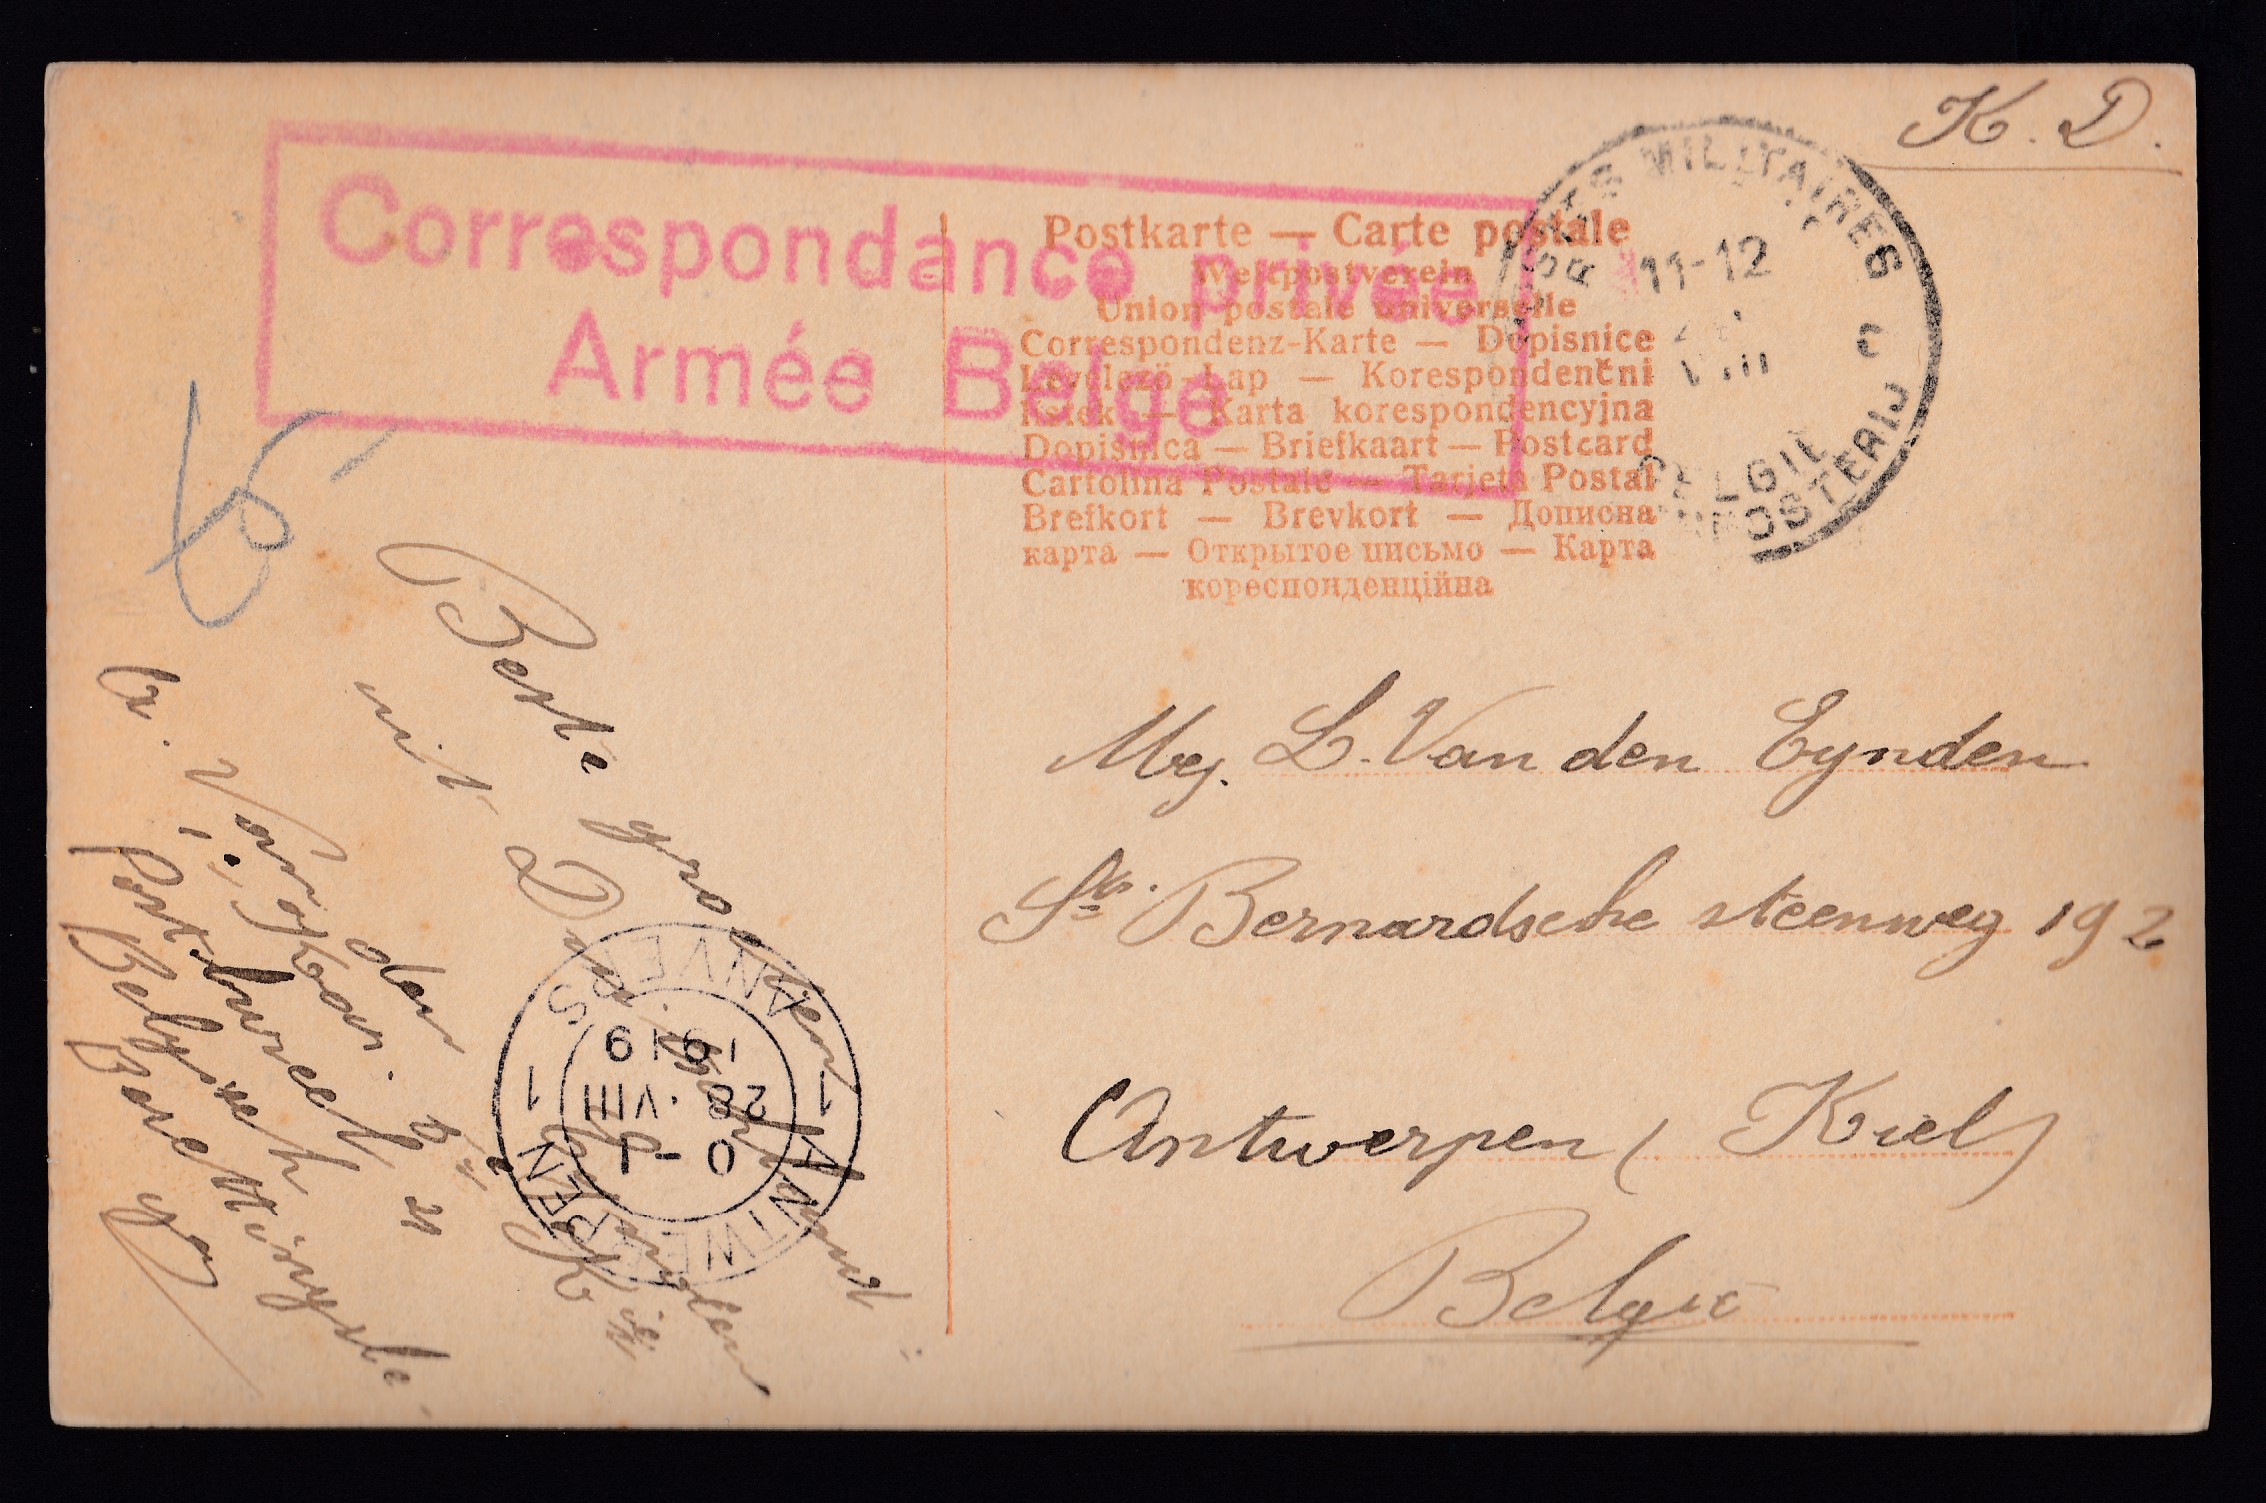 K. D.
Correspondance privée
Armée Belge
POSTES MILITAIRES
11-12
VIII
C
BELGIE
POSTERIJ
Postkarte — Carte postale
Weltpostverein
Union postale universelle
Correspondenz-Karte — Dopisnice
Levelező-Lap — Korespondenční
lístek — Karta korespondencyjna
Dopisnica — Briefkaart — Postcard
Cartolina Postale — Tarjeta Postal
Brefkort — Brevkort — Дописна
карта — Открытое письмо — Карта
кореспонденційна
Mej. L. Van den Eynden
St. Bernardsche steenweg 192
Antwerpen (Kiel)
België
Beste groeten
uit Duitschland
der
Belgisch
1 ANTWERPEN 1
ANVERS
0-1
28.VIII
1919